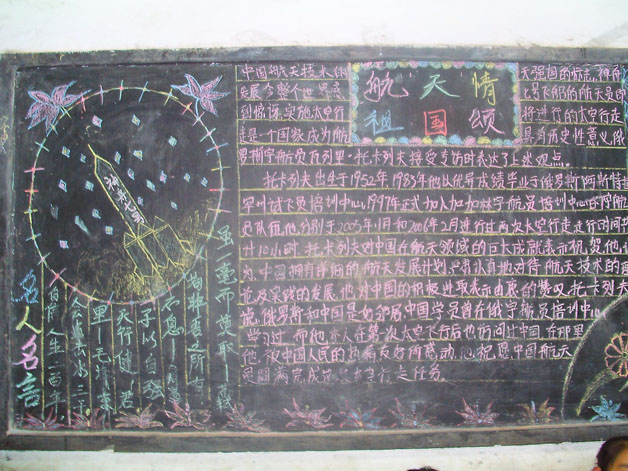 航天情
祖国颂
中国航天技术的
发展令整个世界
到惊讶,实施太空行
走是一个国家成为航
天强国的标志,神舟
上界飞船的航天员即
将进行的太空行走
具有历史性意义,俄
罗斯宇航员瓦列里·托卡列夫接受专访时表达了上述观点。
托卡列夫出生于1952年,1983年他以优异成绩毕业于俄罗斯阿斯特
罕州试飞员培训中心,1997年正式加入加加林宇航员培训中心的宇航
员队伍,他分别于2005年11月和2006年2月进行过两次太空行走,进行时间
计10小时,托卡列夫对中国在航天领域的巨大成就表示祝贺,他认
为,中国拥有详细的航天发展计划,并认真地对待航天技术的
及实践的发展,他对中国的积极进取表示由衷的赞叹,托卡列夫
说,俄罗斯和中国是好邻居,中国学员曾在俄宇航员培训中心
学习过,而他本人在第一次太空飞行后也访问过中国,在那里
他被中国人民的热情友好所感动,他祝愿中国航天
员圆满完成这次太空行走任务。
神舟七号
名人名言
虽一毫而莫取
苟非吾之所有
不息
子以自强
天行健,君
里
会当击水三千
自信人生二百年,